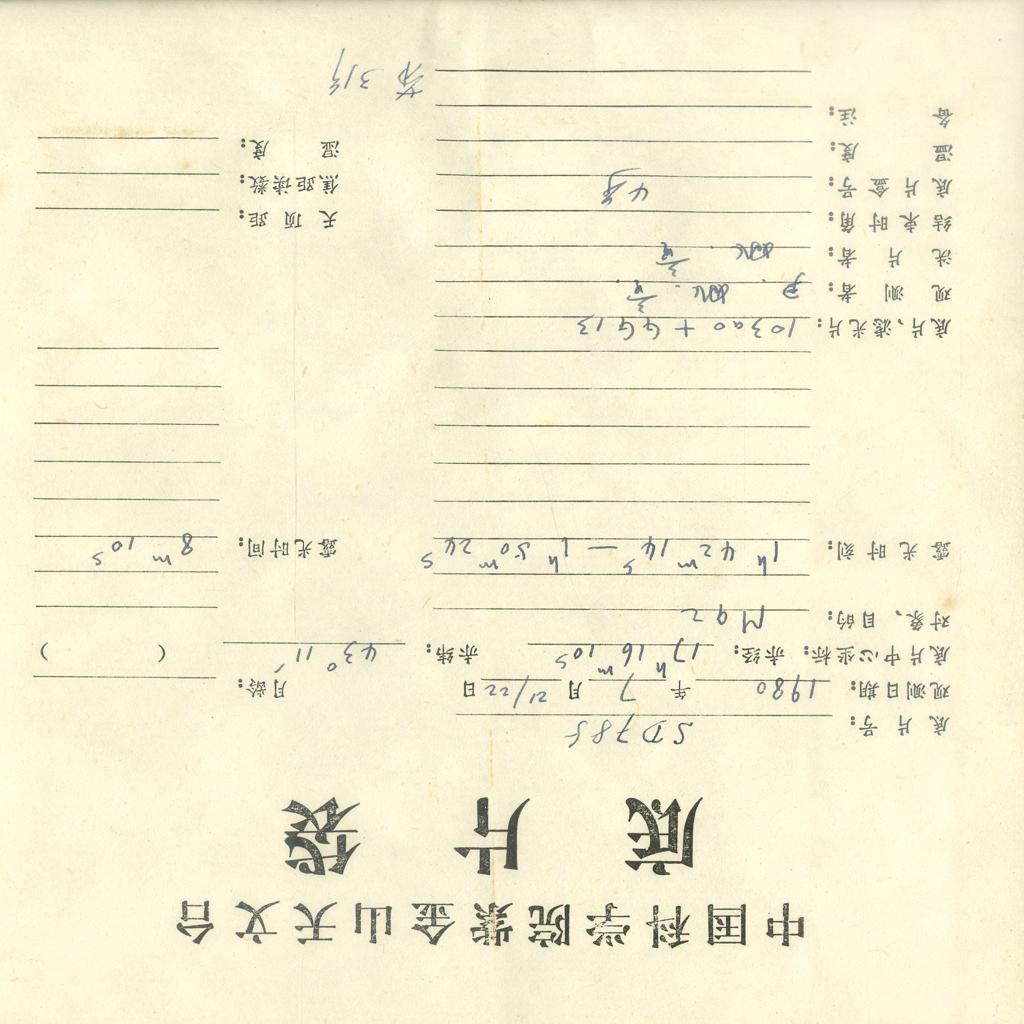 中国科学院紫金山天文台
底片袋
底片号: SD785
观测日期: 1980 年 7 月 21/22 日 月龄:
底片中心坐标: 赤经: 17h 16m 10s 赤纬: 43° 11′ ( )
对象、目的: M92
露光时刻: 1h 42m 14s — 1h 50m 24s 露光时间: 8m 10s
底片、滤光片: 103aO + GG13
观测者:
洗片者:
结束时角: 天顶距:
底片盒号: 4号 焦距读数:
温度: 湿度:
备注: